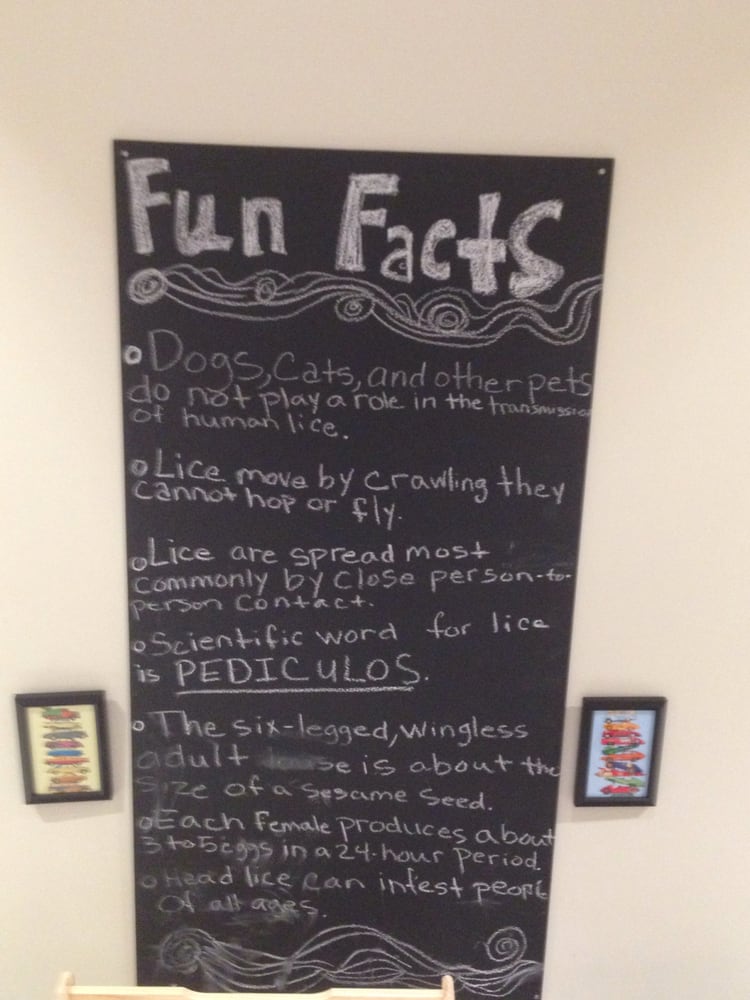 Fun Facts
Dogs, Cats, and other pets
do not play a role in the transmission
of human lice.
Lice move by crawling they
cannot hop or fly.
Lice are spread most
commonly by close person-to-
person contact.
Scientific word for lice
is PEDICULOS.
The six-legged, wingless
adult se is about the
size of a sesame seed.
Each female produces about
3 to 5 eggs in a 24-hour period.
Head lice can infest people
Of all ages.